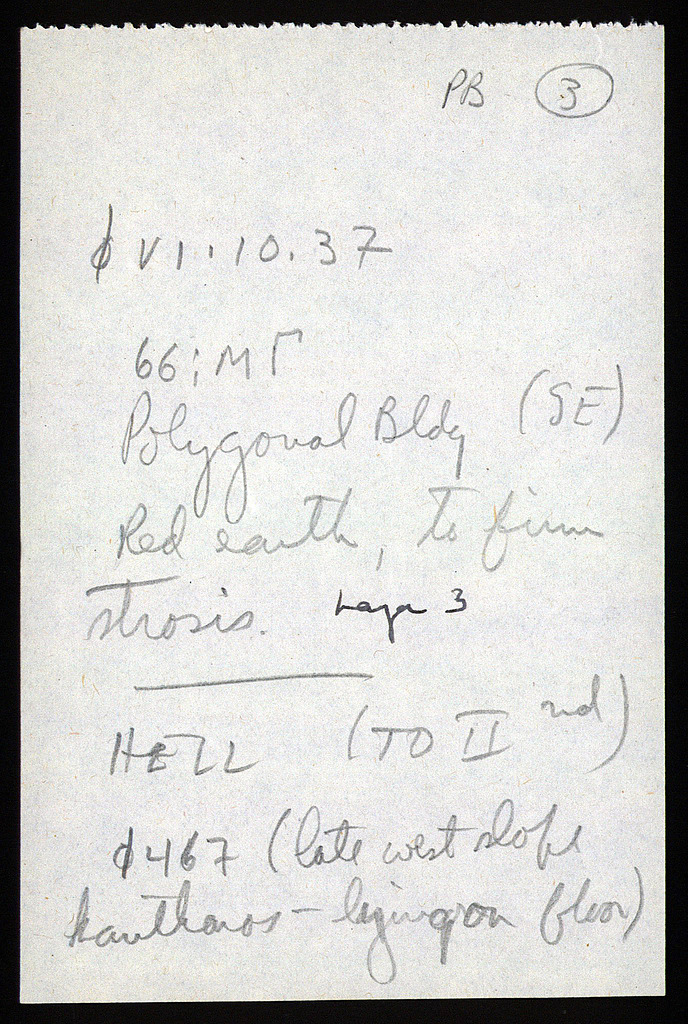 PB ③
ϕ VI·10·37
66:ΜΓ
Polygonal Bldg (SE)
Red earth, to firm
strosis. Layer 3
HELL (TO II nd)
ϕ467 (late west slope
kantharos – lying on floor)